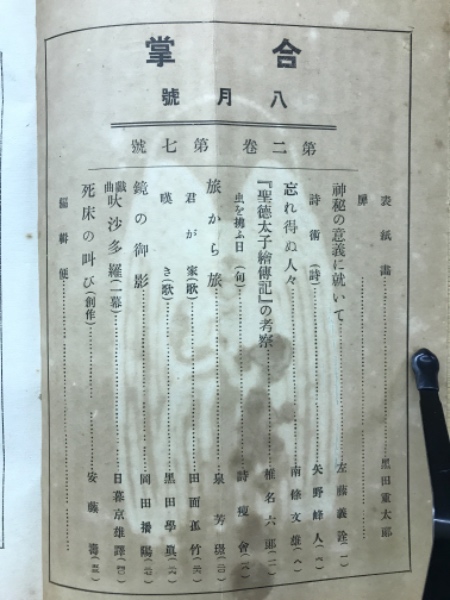 合掌
八月號
第二卷 第七號
表紙畫 黒田重太郎
扉
神秘の意義に就いて 左藤義詮
詩術(詩) 矢野峰人
忘れ得ぬ人々 南條文雄
『聖徳太子繪傳記』の考察 椎名六郎
虫を拂ふ日(句) 詩痩會
旅から旅 泉芳璟
君が家(歌) 田面孤竹
嘆き(歌) 黒田學眞
鏡の御影 岡田播陽
戯曲 吠沙多羅(一幕) 日暮京雄譯
死床の叫び(創作) 安藤
編輯便